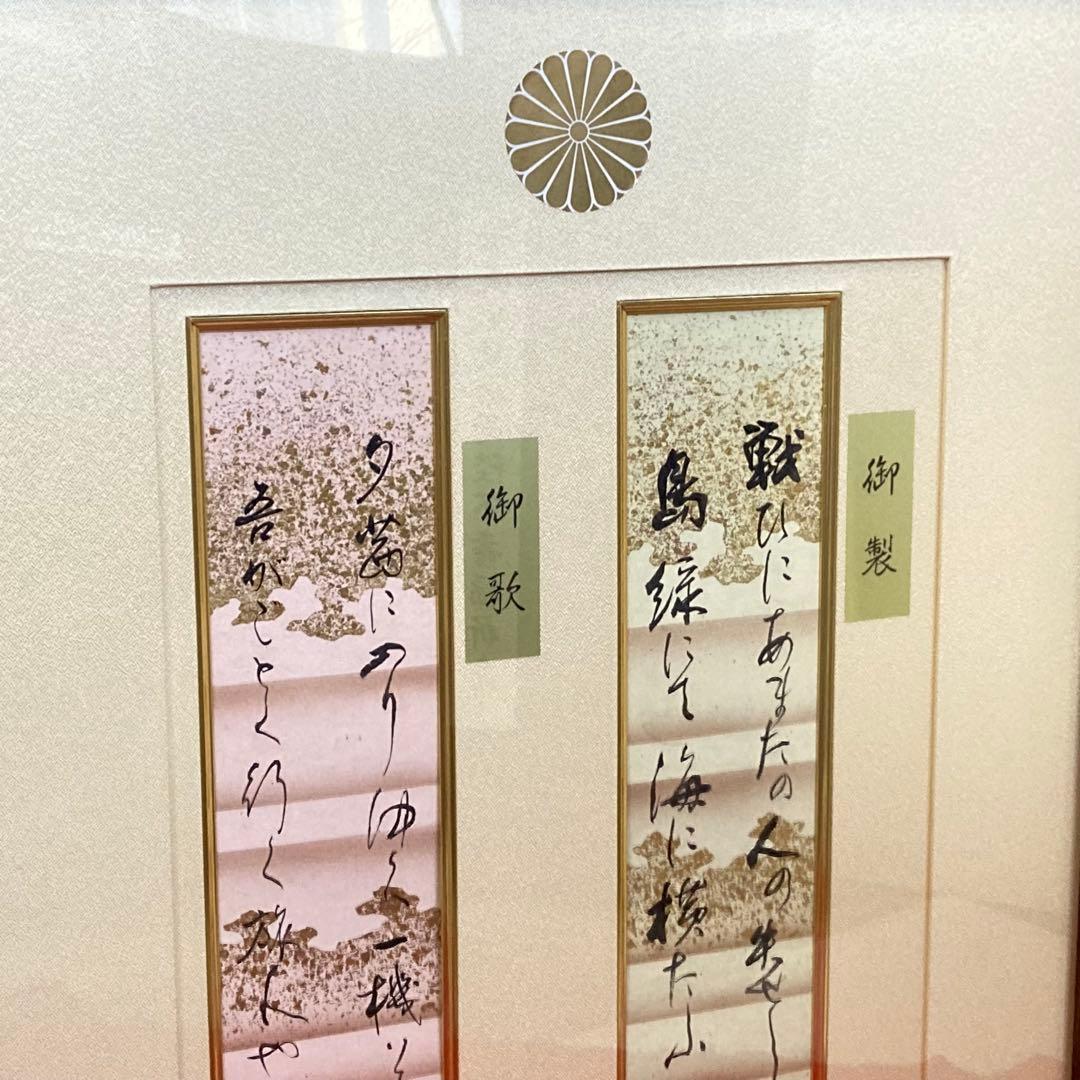 御製
戦ひにあまたの人の失せし
島緑にて海に横たふ
御歌
夕茜に入りゆく一機
吾がごとく行く旅人や